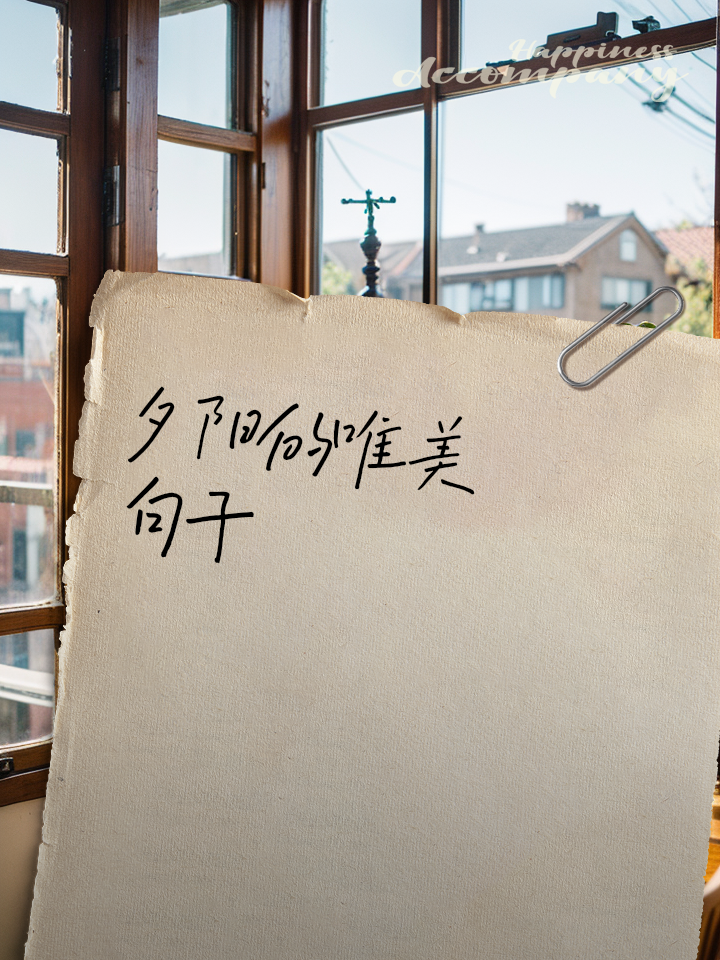 Happiness
Accompany
夕阳的唯美
句子